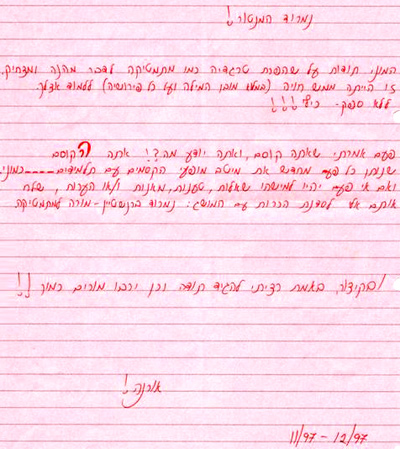 נמרוד המנטור!
המוני תודות על שהפכת טרגדיה כמו מתמטיקה לדבר מהנה ומצחיק,
זו הייתה ממש חויה (במלוא מובן המילה ועל כל פירושיה) ללמוד אצלך.
ללא ספק- כיף!!!
פעם אמרתי שאתה קוסם, ואתה יודע מה?! אתה הקוסם
שנותן כל פעם מחדש את מיטב מופעי הקסמים עם תלמידים----כמוני.
ואם אי פעם יהיו למישהו שאלות, טענות, מאנות ו/או הערות, שלח
אותם אלי לסדנת הכרות עם המושג: נמרוד ברנשטיין-מורה למתמטיקה
ובקיצור, באמת רציתי להגיד תודה וכן ירבו מורים כמוך!!
אורנה!
11/97 - 12/97